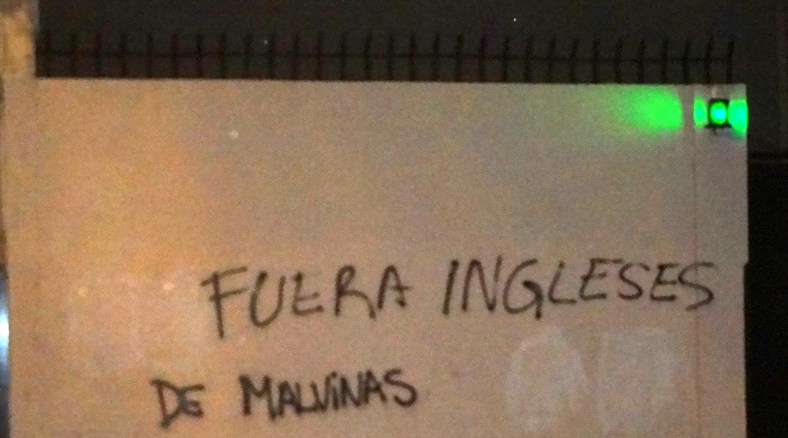 FUERA INGLESES
DE MALViNAS